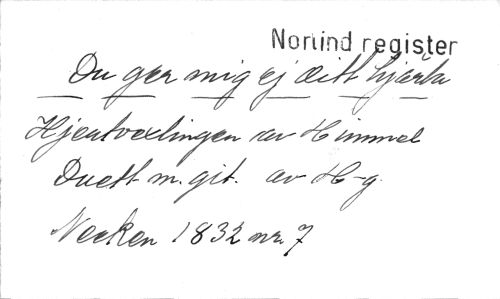 Norlind register
Du ger mig ej ditt hjärta
Hjertvexlingen av Himmel
Duett m. git. av H-g.
Necken 1832 nr. 7